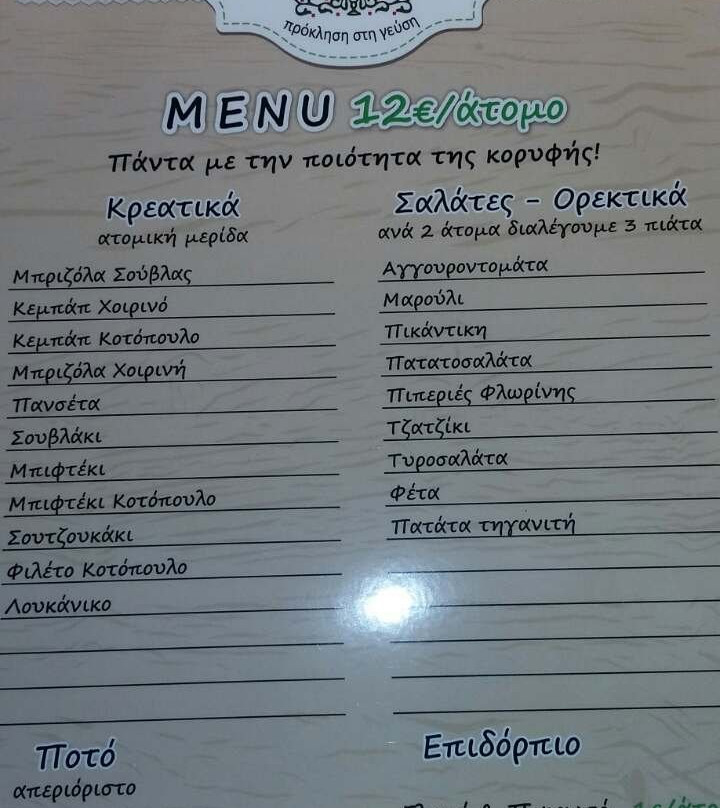 πρόκληση στη γεύση
MENU 12€/άτομο
Πάντα με την ποιότητα της κορυφής!
Κρεατικά
ατομική μερίδα
Μπριζόλα Σούβλας
Κεμπάπ Χοιρινό
Κεμπάπ Κοτόπουλο
Μπριζόλα Χοιρινή
Πανσέτα
Σουβλάκι
Μπιφτέκι
Μπιφτέκι Κοτόπουλο
Σουτζουκάκι
Φιλέτο Κοτόπουλο
Λουκάνικο
Σαλάτες - Ορεκτικά
ανά 2 άτομα διαλέγουμε 3 πιάτα
Αγγουροντομάτα
Μαρούλι
Πικάντικη
Πατατοσαλάτα
Πιπεριές Φλωρίνης
Τζατζίκι
Τυροσαλάτα
Φέτα
Πατάτα τηγανιτή
Ποτό
απεριόριστο
Επιδόρπιο